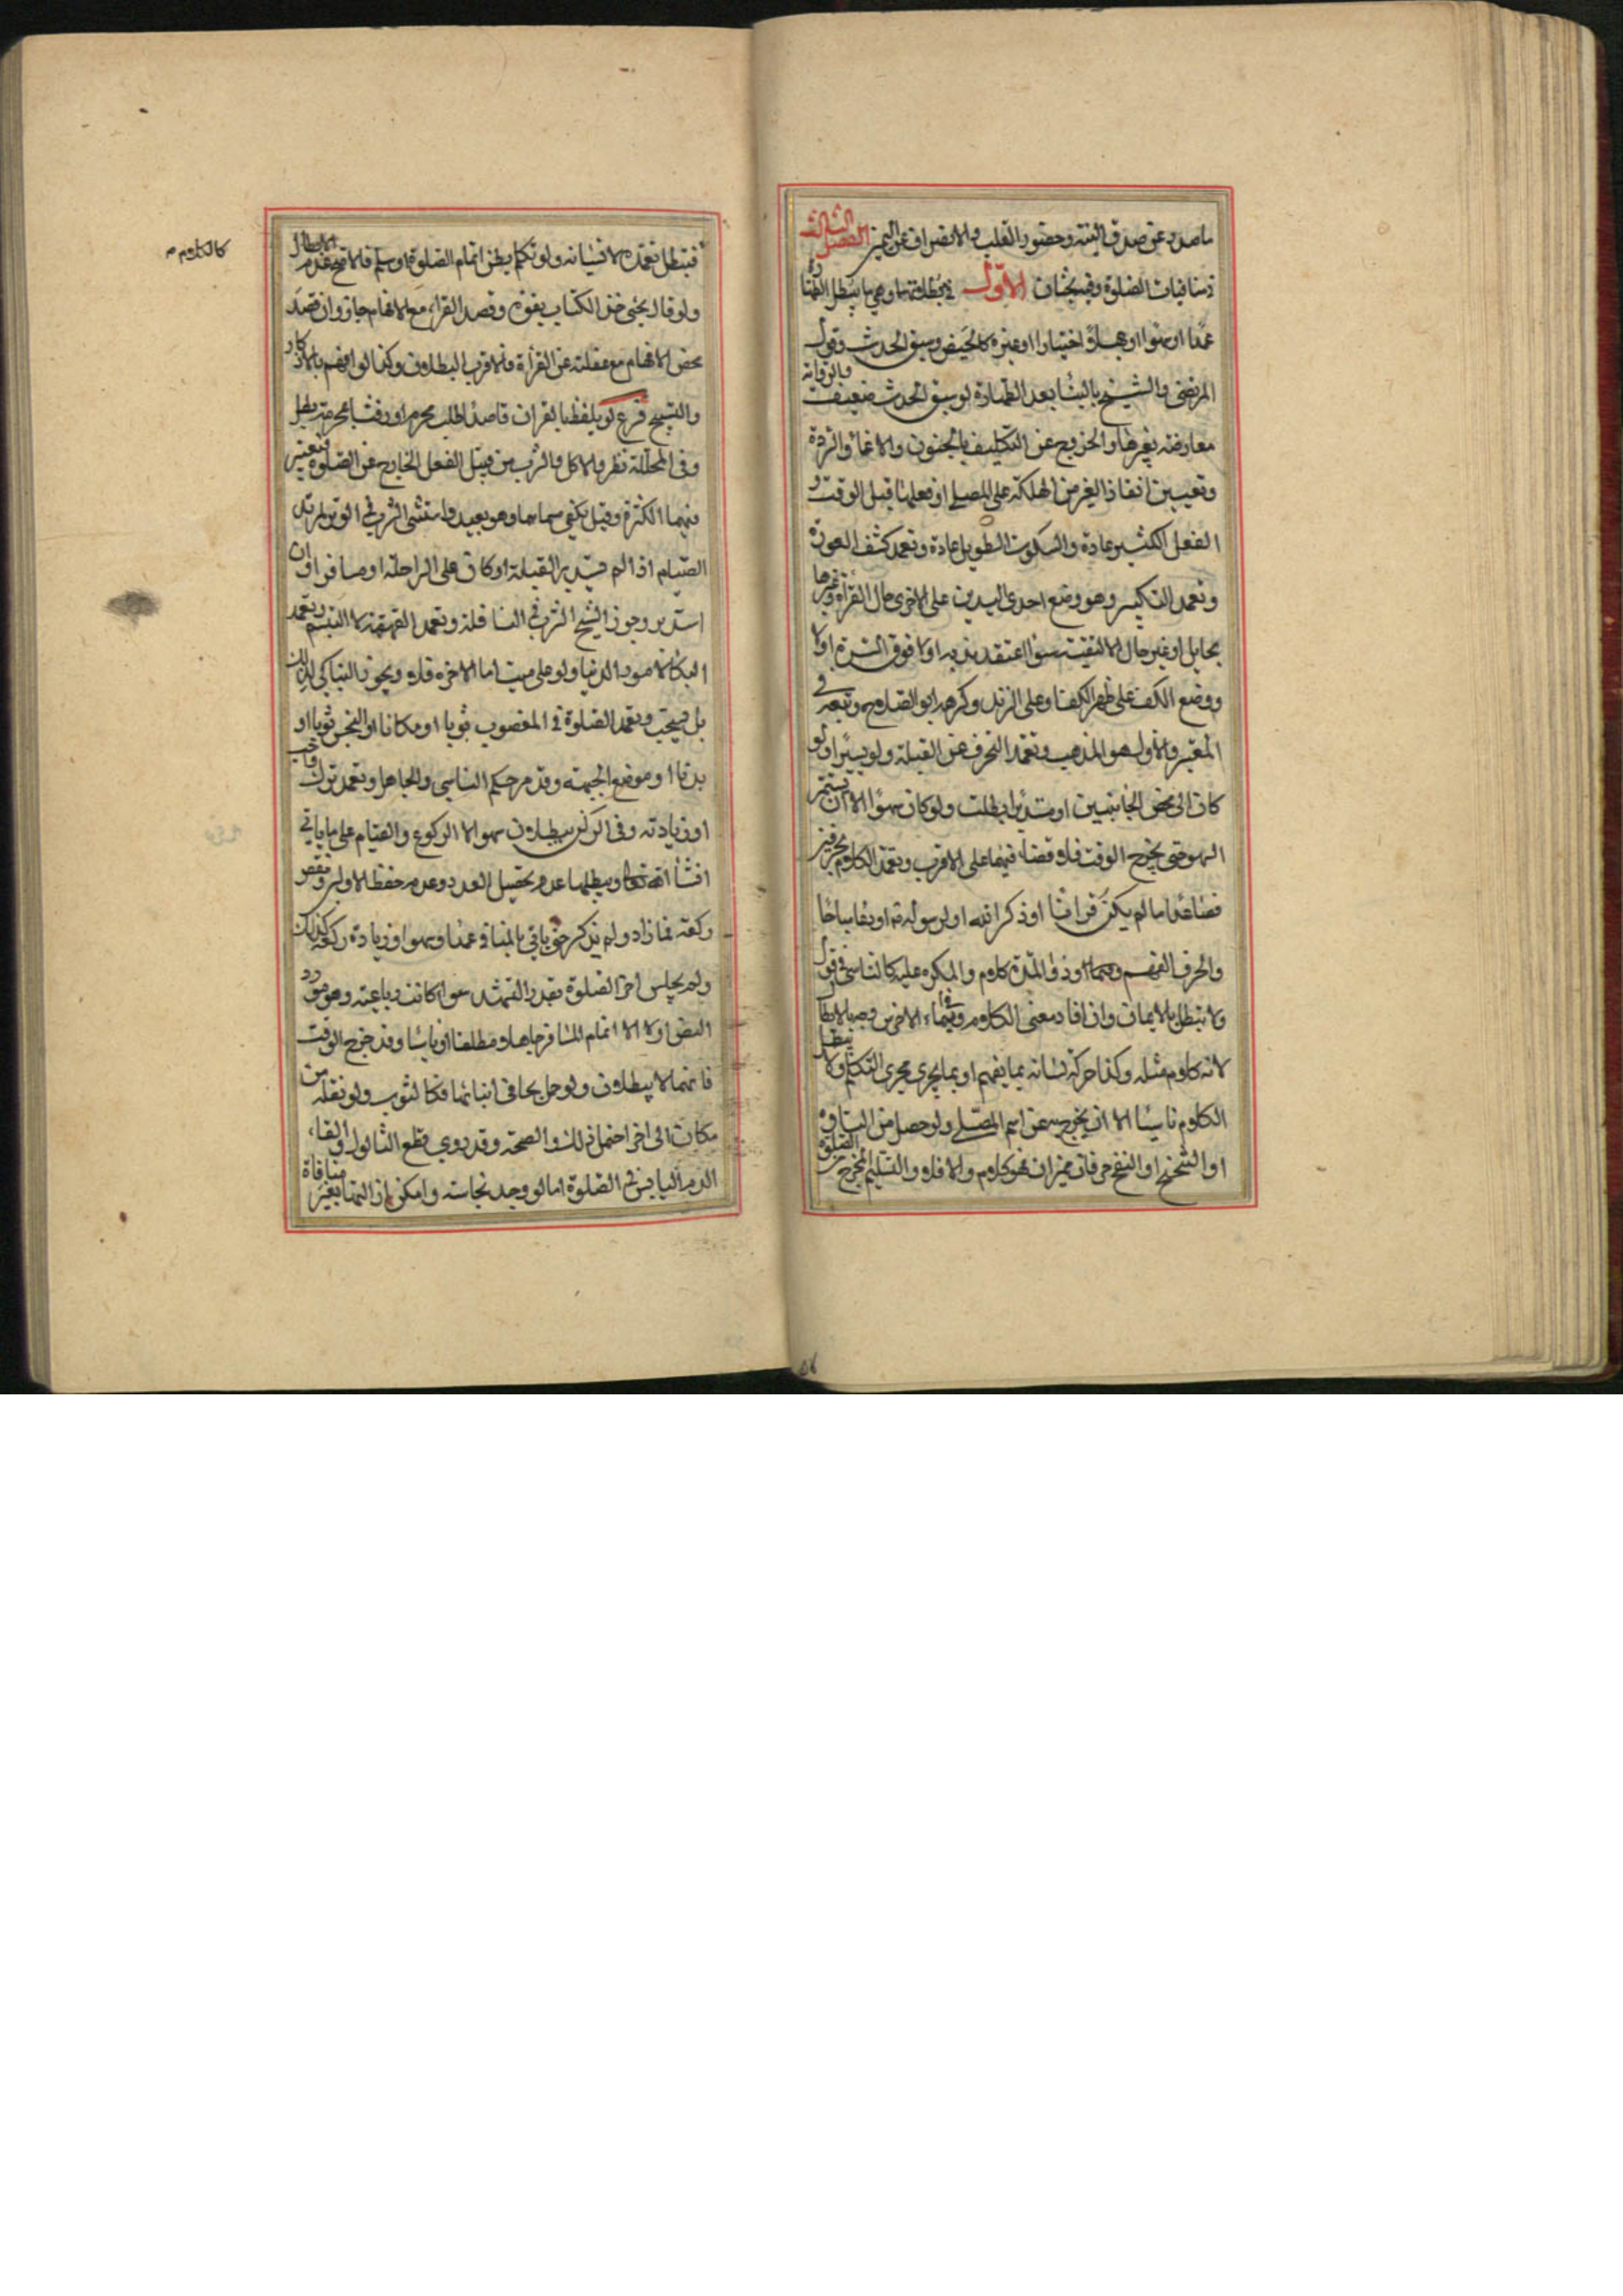 ما صدر عن صدق النية وحضور القلب والانصراف عن التميز الفصل الثالث
في منافيات الصلوة وفيه بحثان الأول في مبطلاتها وهي ما يبطل الطهارة
عمدا او سهوا او جهلا اختيارا او غيره كالحيض وسبق الحدث وقول
المرتضى والشيخ بالبناء بعد الطهارة لو سبق الحدث ضعيف وبالرواية
معارضة بغيرها والخروج عن التكليف بالجنون والاغماء والردة
وتعيين انقاذ الغير من الهلكة على المصلي او فعلها قبل الوقت و
الفعل الكثير عادة والسكوت الطويل عادة وتعمد كشف العورة
وتعمد التكفير وهو وضع احدى اليدين على الاخرى حال القراءة وغيرها
بحايل او غير حال الا لتقية سواء اعتقد ندبه او لا فوق السرة او لا
ووضع الكف على ظهر الكف او على الزند وكرهه ابو الصلاح وتبعه في
المعتبر والأول هو المذهب وتعمد التحرف عن القبلة ولو يسيرا ولو
كان الى محض الجانبين او مستدبرا بطلت ولو كان سهوا الا ان يستمر
السهو حتى يخرج الوقت فلا قضاء فيهما على الاقرب وتعمد الكلام بحرفين
فصاعدا ما لم يكن قرانا او ذكر الله او لرسوله او دعاء مباحا
والحرف المفهم وبعده او ذو المدة كلام والمكره عليه كالناسي في قول
ولا تبطل بالايماء وان افاد معنى الكلام وفي ايماء الاخرس وجه بالابطال
لانه كلام مثله وكذا حركة لسانه بما يفهم او بما يجري مجرى التكلم ولا تبطل
الكلام ناسيا الا ان يخرج به عن اسم المصلي ولو حصل من التأوه
او التنحنح او النفخ حرفان مميزان فهو كلام والا فلا والتسليم المخرج من الصلوة
كالكلام
فتبطل بتعمده لا نسيانه ولو تكلم بظن اتمام الصلوة او سلم فالاصح عدم الابطال
ولو قال يحيى خذ الكتاب بقوة وقصد القراءة مع الافهام جاز وان قصد
محض الافهام مع غفلته عن القرأة فالاقرب البطلان وكذا لو افهم بالاذكار
والتسبيح فرع لو تلفظ بالقران قاصدا طلب محرم او رفثا بمحرمة بطل
وفي المحللة نظر والاكل والشرب من قبيل الفعل الخارج عن الصلوة فتعتبر
فيهما الكثرة وقيل يكفي مسماهما وهو بعيد واستثنى الشرب في الوتر لمريد
الصيام اذا لم يستدبر القبلة او كان على الراحلة او مسافرا وان
استدبر وجوز الشيخ الشرب في النافلة وتعمد القهقهة لا التبسم وتعمد
البكاء لامور الدنيا ولو على ميت اما الاخرة فلا ويجوز التباكي لذلك
بل يستحب وتعمد الصلوة في المغصوب ثوبا او مكانا او النجس ثوبا او
بدنا او موضع الجبهة وقد مر حكم الناسي والجاهل وتعمد ترك واجب
او زيادته وفي الركن يبطلان سهوا الا الركوع والقيام على ما ياتي
انشاء الله تعالى ويبطلها عدم تحصيل العدد وعدم حفظ الاوليين ونقص
ركعة فما زاد ولم يذكر حتى ياتي بالمنافي عمدا وسهوا وزيادة ركعة كذلك
ولم يجلس اخر الصلوة بقدر التشهد سواء كانت رباعية وهو مورد
النص او لا الا اتمام المسافر جاهلا مطلقا او ناسيا وقد خرج الوقت
فانهما لا يبطلان ولو حل بجافي اثنائها فكالثوب ولو نقله من
مكان الى اخر احتمل ذلك والصحة وقد روي قطع الثالول والقاء
الدم اليابس في الصلوة اما لو وجد نجاسة وامكن ازالتها بغير منافاة